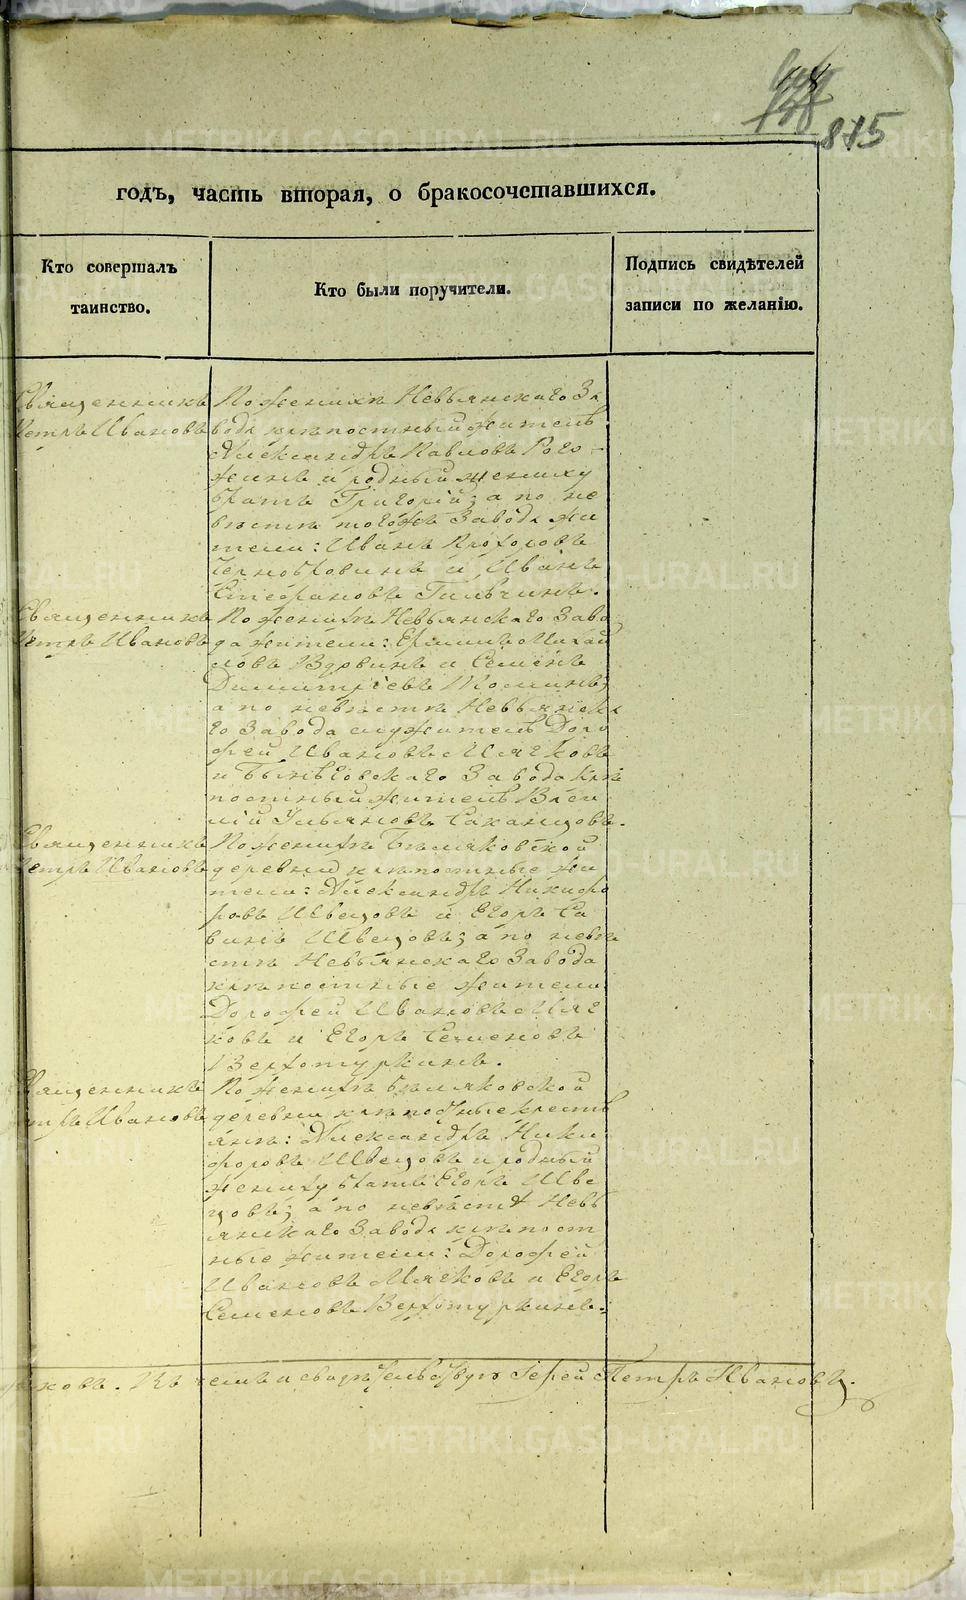 815
годъ, часть вторая, о бракосочетавшихся.
Кто совершалъ
таинство.
Кто были поручители.
Подпись свидѣтелей
записи по желанію.
Священникъ
Петръ Ивановъ
По женихѣ Невьянскаго За
вода крѣпостный житель
Александръ Павловъ Рого-
жинъ и родный жениху
братъ Григорій; а по не
вѣстѣ тогожъ Завода жи
тели: Иванъ Прохоровъ
Чернобровинъ и Иванъ
Стефановъ
Священникъ
Петръ Ивановъ
По женихѣ Невьянскаго Заво
да жители: Ермилъ Михай
ловъ Вдовинъ и Семенъ
Димитріевъ
а по невѣстѣ Невьянска
го Завода служитель Доро
фей Ивановъ Мягковъ
и Быньговскаго Завода крѣ
постный житель Васи
лій Ульяновъ
Священникъ
Петръ Ивановъ
По женихѣ Бѣляковской
деревни крѣпостные жи
тели: Александръ Никифо
ровъ Швецовъ и Егоръ Са
винъ Швецовъ; а по невѣ
стѣ Невьянскаго Завода
крѣпостные жители
Дорофей Ивановъ Мяг
ковъ и Егоръ Семеновъ
Верхотуркинъ.
Священникъ
Петръ Ивановъ
По женихѣ Бѣляковской
деревни крѣпостные кресть
янъ: Александръ Ники
форовъ Швецовъ и родный
жениху братъ Егоръ Шве
цовъ; а по невѣстѣ Невь
янскаго Завода крѣпост
ные жители: Дорофей
Ивановъ Мягковъ и Егоръ
Семеновъ Верхотуркинъ.
въ чемъ и свидѣтельствую Іерей Петръ Ивановъ.
METRIKI.GASO-URAL.RU